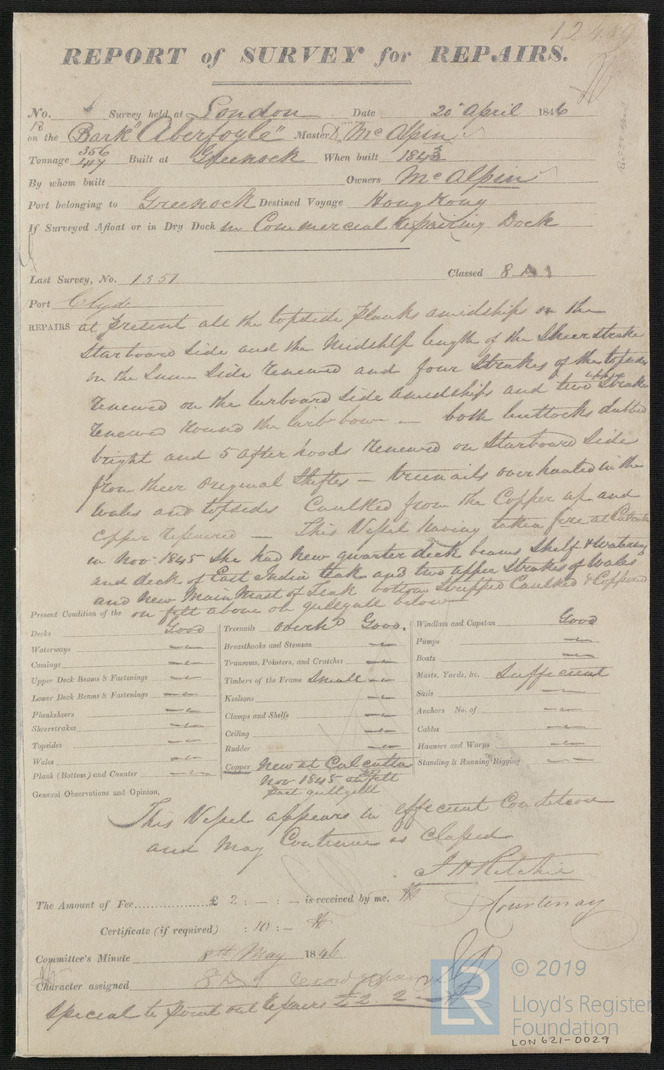 REPORT of SURVEY for REPAIRS.
No. Survey held at London Date 20th April 1846
on the Bark "Aberfoyle" Master McAlpin
Tonnage 356 417 Built at Greenock When built 1843
By whom built Owners McAlpin
Port belonging to Greenock Destined Voyage Hong Kong
If Surveyed Afloat or in Dry Dock in Commercial Repairing Dock
Last Survey, No. 1351 Classed 8 A 1
Port Clyde
REPAIRS at present all the topside planks amidships on the
Starboard Side and the Midship length of the Sheerstrake
on the Same Side renewed and four Strakes of the topsides
renewed on the larboard Side amidships and two upper Strakes
renewed round the larb bow — both buttocks dubbed
bright and 5 after hoods renewed on Starboard Side
from their original Shifts — treenails overhauled in the
Wales and topsides Caulked from the Copper up and
copper repaired — This Vessel having taken fire at Calcutta
in Nov 1845 She had New quarter deck beams Shelf & Waterway
and deck of East India teak and two upper Strakes of Wales
and New Main Mast of Teak bottom Stripped Caulked & Coppered
on felt above on gullgull below
Present Condition of the
Decks Good
Waterways
Comings
Upper Deck Beams & Fastenings
Lower Deck Beams & Fastenings
Planksheers
Sheerstrakes
Topsides
Wales
Plank (Bottom) and Counter
Treenails overhd Good.
Breasthooks and Stemson
Transoms, Pointers, and Crutches
Timbers of the Frame Small
Keelsons
Clamps and Shelfs
Ceiling
Rudder
Copper New at Calcutta
Nov 1845 on felt
part gullgull
Windlass and Capstan Good
Pumps
Boats
Masts, Yards, &c. Sufficient
Sails
Anchors No. of
Cables
Hawsers and Warps
Standing & Running Rigging
General Observations and Opinion,
This Vessel appears in efficient Condition
and may Continue as Classed
J H Ritchie
Courtenay
The Amount of Fee £ 2 : - : - is received by me,
Certificate (if required) : 10 : -
Committee's Minute 8th May 1846
Character assigned 8 A 1
Special to point out repairs £2 2
LR
© 2019
Lloyd's Register
Foundation
LON 621-0029